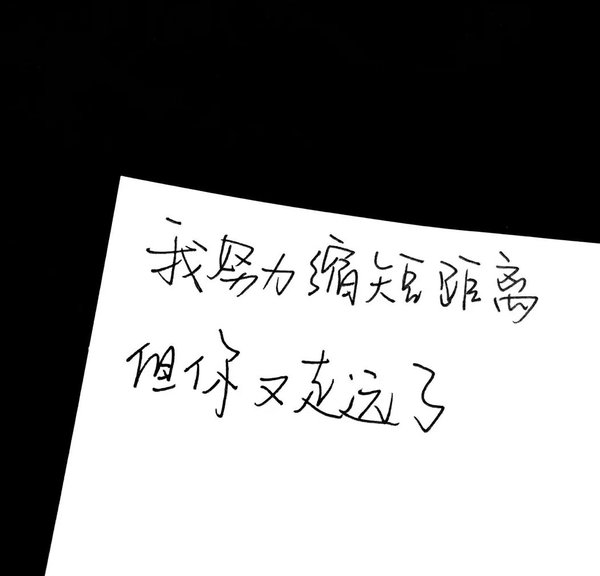 我努力缩短距离
但你又走远了